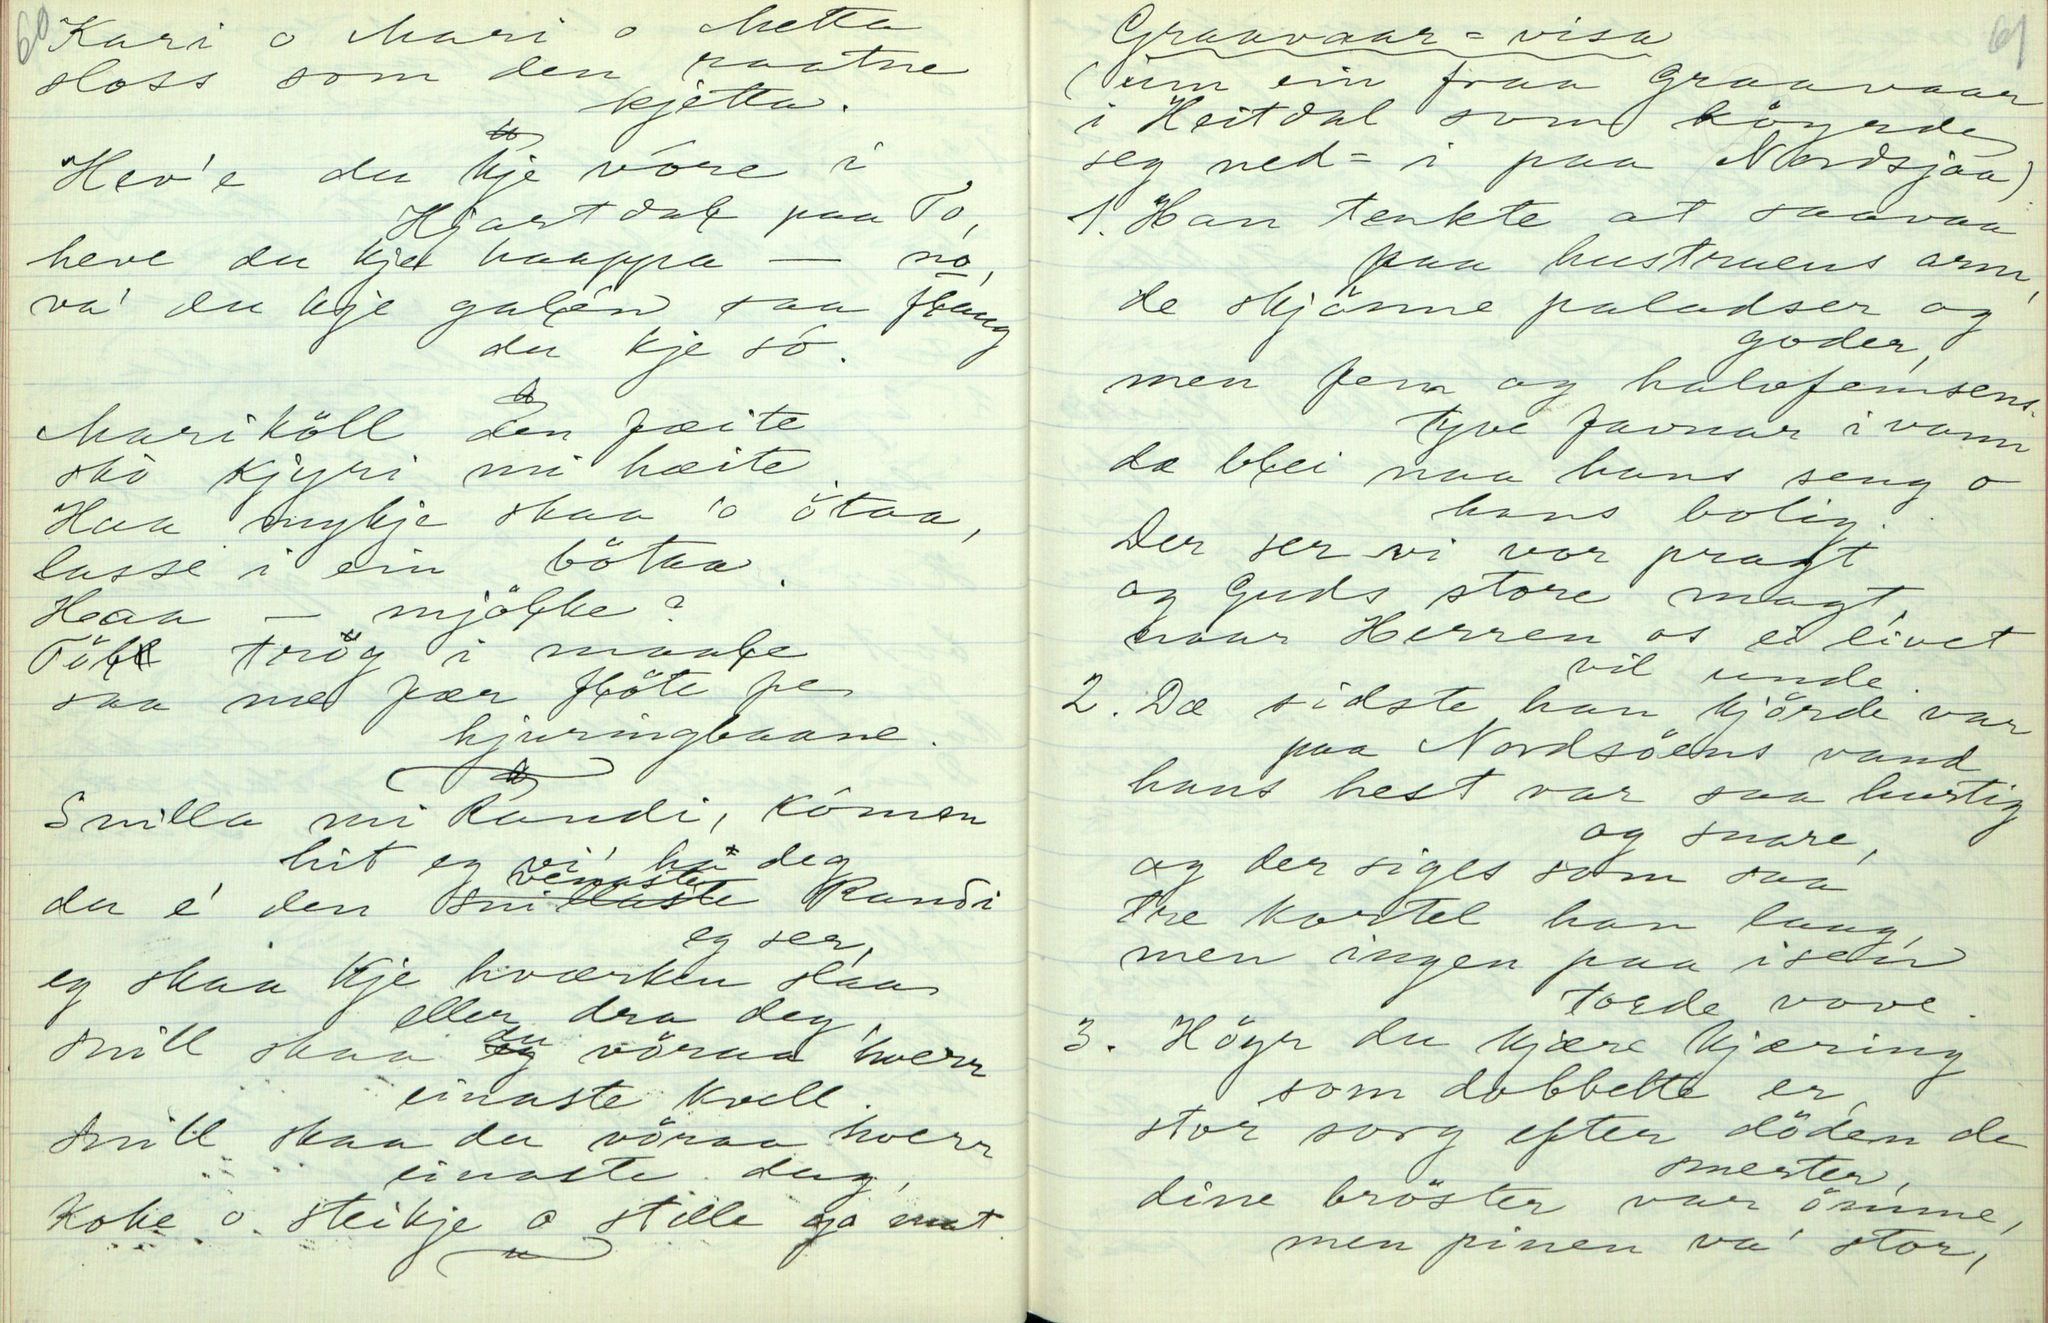 60
Kari o Mari o Metta
sloss som den raatne
kjetta.
Hev'e du kje vóre i
Hjartdal paa To,
heve du kje haappa — no,
va' du kje galen saa flaug
du kje so.
Mari Köll den feite
sko kjyri mi hæite
Haa mykje skaa 'o ötaa,
lasse i ein bötaa.
Haa — mjölke?
Töll trög i maale
saa me fær flöte pe
hjuringbaane.
Snilla mi Randi, kómen
hit eg vi' ha deg
du e' den venaste Randi
eg ser,
eg skaa kje hværken slaa
eller dra deg,
snill skaa du vöraa hverr
einaste kvell.
Snill skaa du vöraa hverr
einaste dag,
Koke o steikje o stelle go mat.
61
Graavaar-visa
(um ein fraa Graavaar
i Heitdal som köyrde
seg ned-i paa Nordsjaa)
1. Han tenkte at saavaa
paa hustruens arm,
de skjönne paladser og
goder,
men fem og halvfemsens-
tyve favnar i vann
dæ blei naa hans seng o
hans bolig.
Der ser vi vor pragt
og Guds store magt,
naar Herren os ei livet
vil unde.
2. Dæ sidste han kjörde var
paa Nordsöens vand
hans hest var saa hurtig
og snare,
og der siges som saa
tre kortel han laag,
men ingen paa isen
torde vove.
3. Höyr du kjære kjæring
som dobbelte er,
stor sorg efter döden de
smerter,
dine bröster var ömme,
men pinen va' stor,